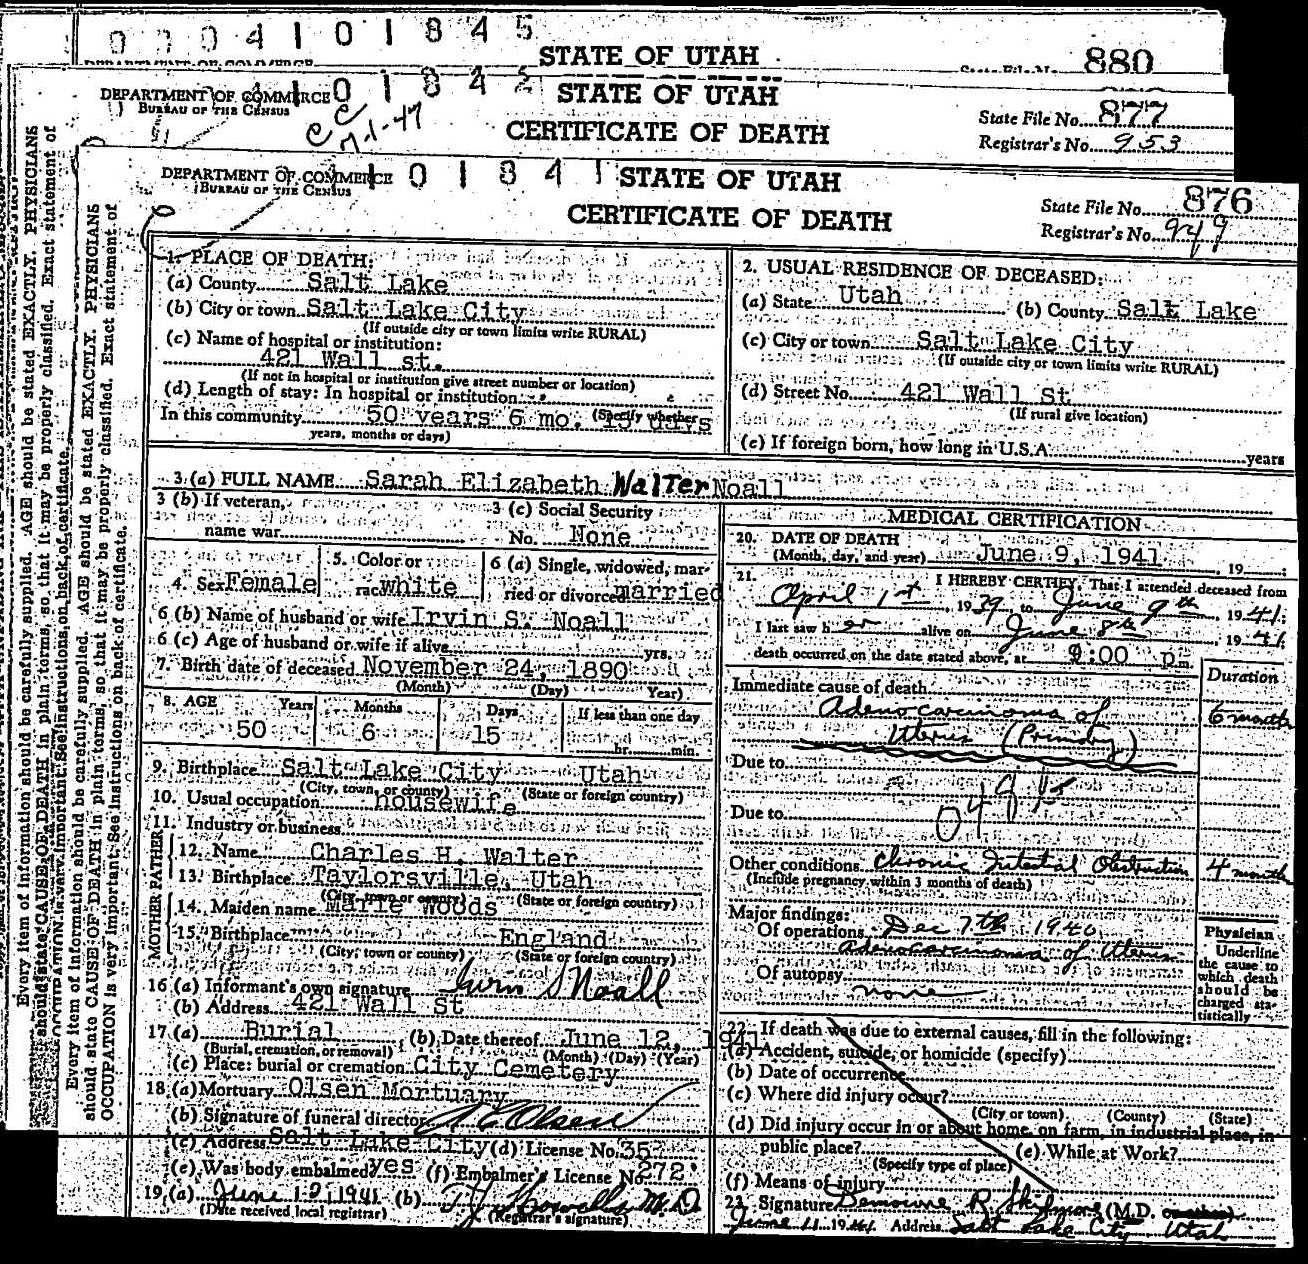 0 0 0 4 1 0 1 8 4 5
STATE OF UTAH
880
DEPARTMENT OF COMMERCE
BUREAU OF THE CENSUS
1 0 1 8 4
STATE OF UTAH
CERTIFICATE OF DEATH
State File No. 877
Registrar's No. 953
7-1-47
DEPARTMENT OF COMMERCE
BUREAU OF THE CENSUS
1 0 1 8 4 1
STATE OF UTAH
CERTIFICATE OF DEATH
State File No. 876
Registrar's No. 949
Every item of information should be carefully supplied. AGE should be stated EXACTLY. PHYSICIANS
should state CAUSE OF DEATH in plain terms, so that it may be properly classified. Exact statement of
OCCUPATION is very important. See instructions on back of certificate.
Every item of information should be carefully supplied. AGE should be stated EXACTLY. PHYSICIANS
should state CAUSE OF DEATH in plain terms, so that it may be properly classified. Exact statement of
OCCUPATION is very important. See instructions on back of certificate.
1. PLACE OF DEATH:
(a) County Salt Lake
(b) City or town Salt Lake City
(If outside city or town limits write RURAL)
(c) Name of hospital or institution:
421 Wall st.
(If not in hospital or institution give street number or location)
(d) Length of stay: In hospital or institution
In this community 50 years 6 mo. 15 days (Specify whether
years, months or days)
2. USUAL RESIDENCE OF DECEASED:
(a) State Utah (b) County Salt Lake
(c) City or town Salt Lake City
(If outside city or town limits write RURAL)
(d) Street No. 421 Wall St
(If rural give location)
(e) If foreign born, how long in U.S.A. years
3. (a) FULL NAME Sarah Elizabeth Walter Noall
3 (b) If veteran, name war
3 (c) Social Security No. None
4. Sex Female
5. Color or race white
6 (a) Single, widowed, married or divorced married
6 (b) Name of husband or wife Irvin S. Noall
6 (c) Age of husband or wife if alive yrs.
7. Birth date of deceased November 24, 1890
(Month) (Day) Year)
8. AGE Years Months Days If less than one day
50 6 15 hr. min.
9. Birthplace Salt Lake City Utah
(City, town, or county) (State or foreign country)
10. Usual occupation housewife
11. Industry or business
FATHER
12. Name Charles H. Walter
13. Birthplace Taylorsville, Utah
(City, town or county) (State or foreign country)
MOTHER
14. Maiden name Marie Woods
15. Birthplace England
(City, town or county) (State or foreign country)
16 (a) Informant's own signature Irvin S Noall
(b) Address 421 Wall St
17. (a) Burial (b) Date thereof June 12, 1941
(Burial, cremation, or removal) (Month) (Day) (Year)
(c) Place: burial or cremation City Cemetery
18 (a) Mortuary Olsen Mortuary
(b) Signature of funeral director Olsen
(c) Address Salt Lake City (d) License No. 35
(e) Was body embalmed yes (f) Embalmer's License No. 272
19. (a) June 12, 1941 (b) M.D.
(Date received local registrar) (Registrar's signature)
MEDICAL CERTIFICATION
20. DATE OF DEATH
(Month, day, and year) June 9, 1941, 19
21. I HEREBY CERTIFY, That I attended deceased from
April 1st, 1939 to June 9th 1941:
I last saw h er alive on June 8th 1941
death occurred on the date stated above, at 9:00 p.m.
Duration
Immediate cause of death
Adenocarcinoma of 6 months
Uterus (Primary)
Due to
Due to
Other conditions Chronic Intestal Obstruction 4 months
(Include pregnancy within 3 months of death)
Major findings:
Of operations Dec 7th 1940
adenocarcinoma of Uterus
Of autopsy none
Physician
Underline
the cause to
which death
should be
charged sta-
tistically
22. If death was due to external causes, fill in the following:
(a) Accident, suicide, or homicide (specify)
(b) Date of occurrence
(c) Where did injury occur?
(City or town) (County) (State)
(d) Did injury occur in or about home, on farm, in industrial place, in
public place? (e) While at Work?
(Specify type of place)
(f) Means of injury
23. Signature (M.D. or other)
June 11 1941 Address Salt Lake City Utah